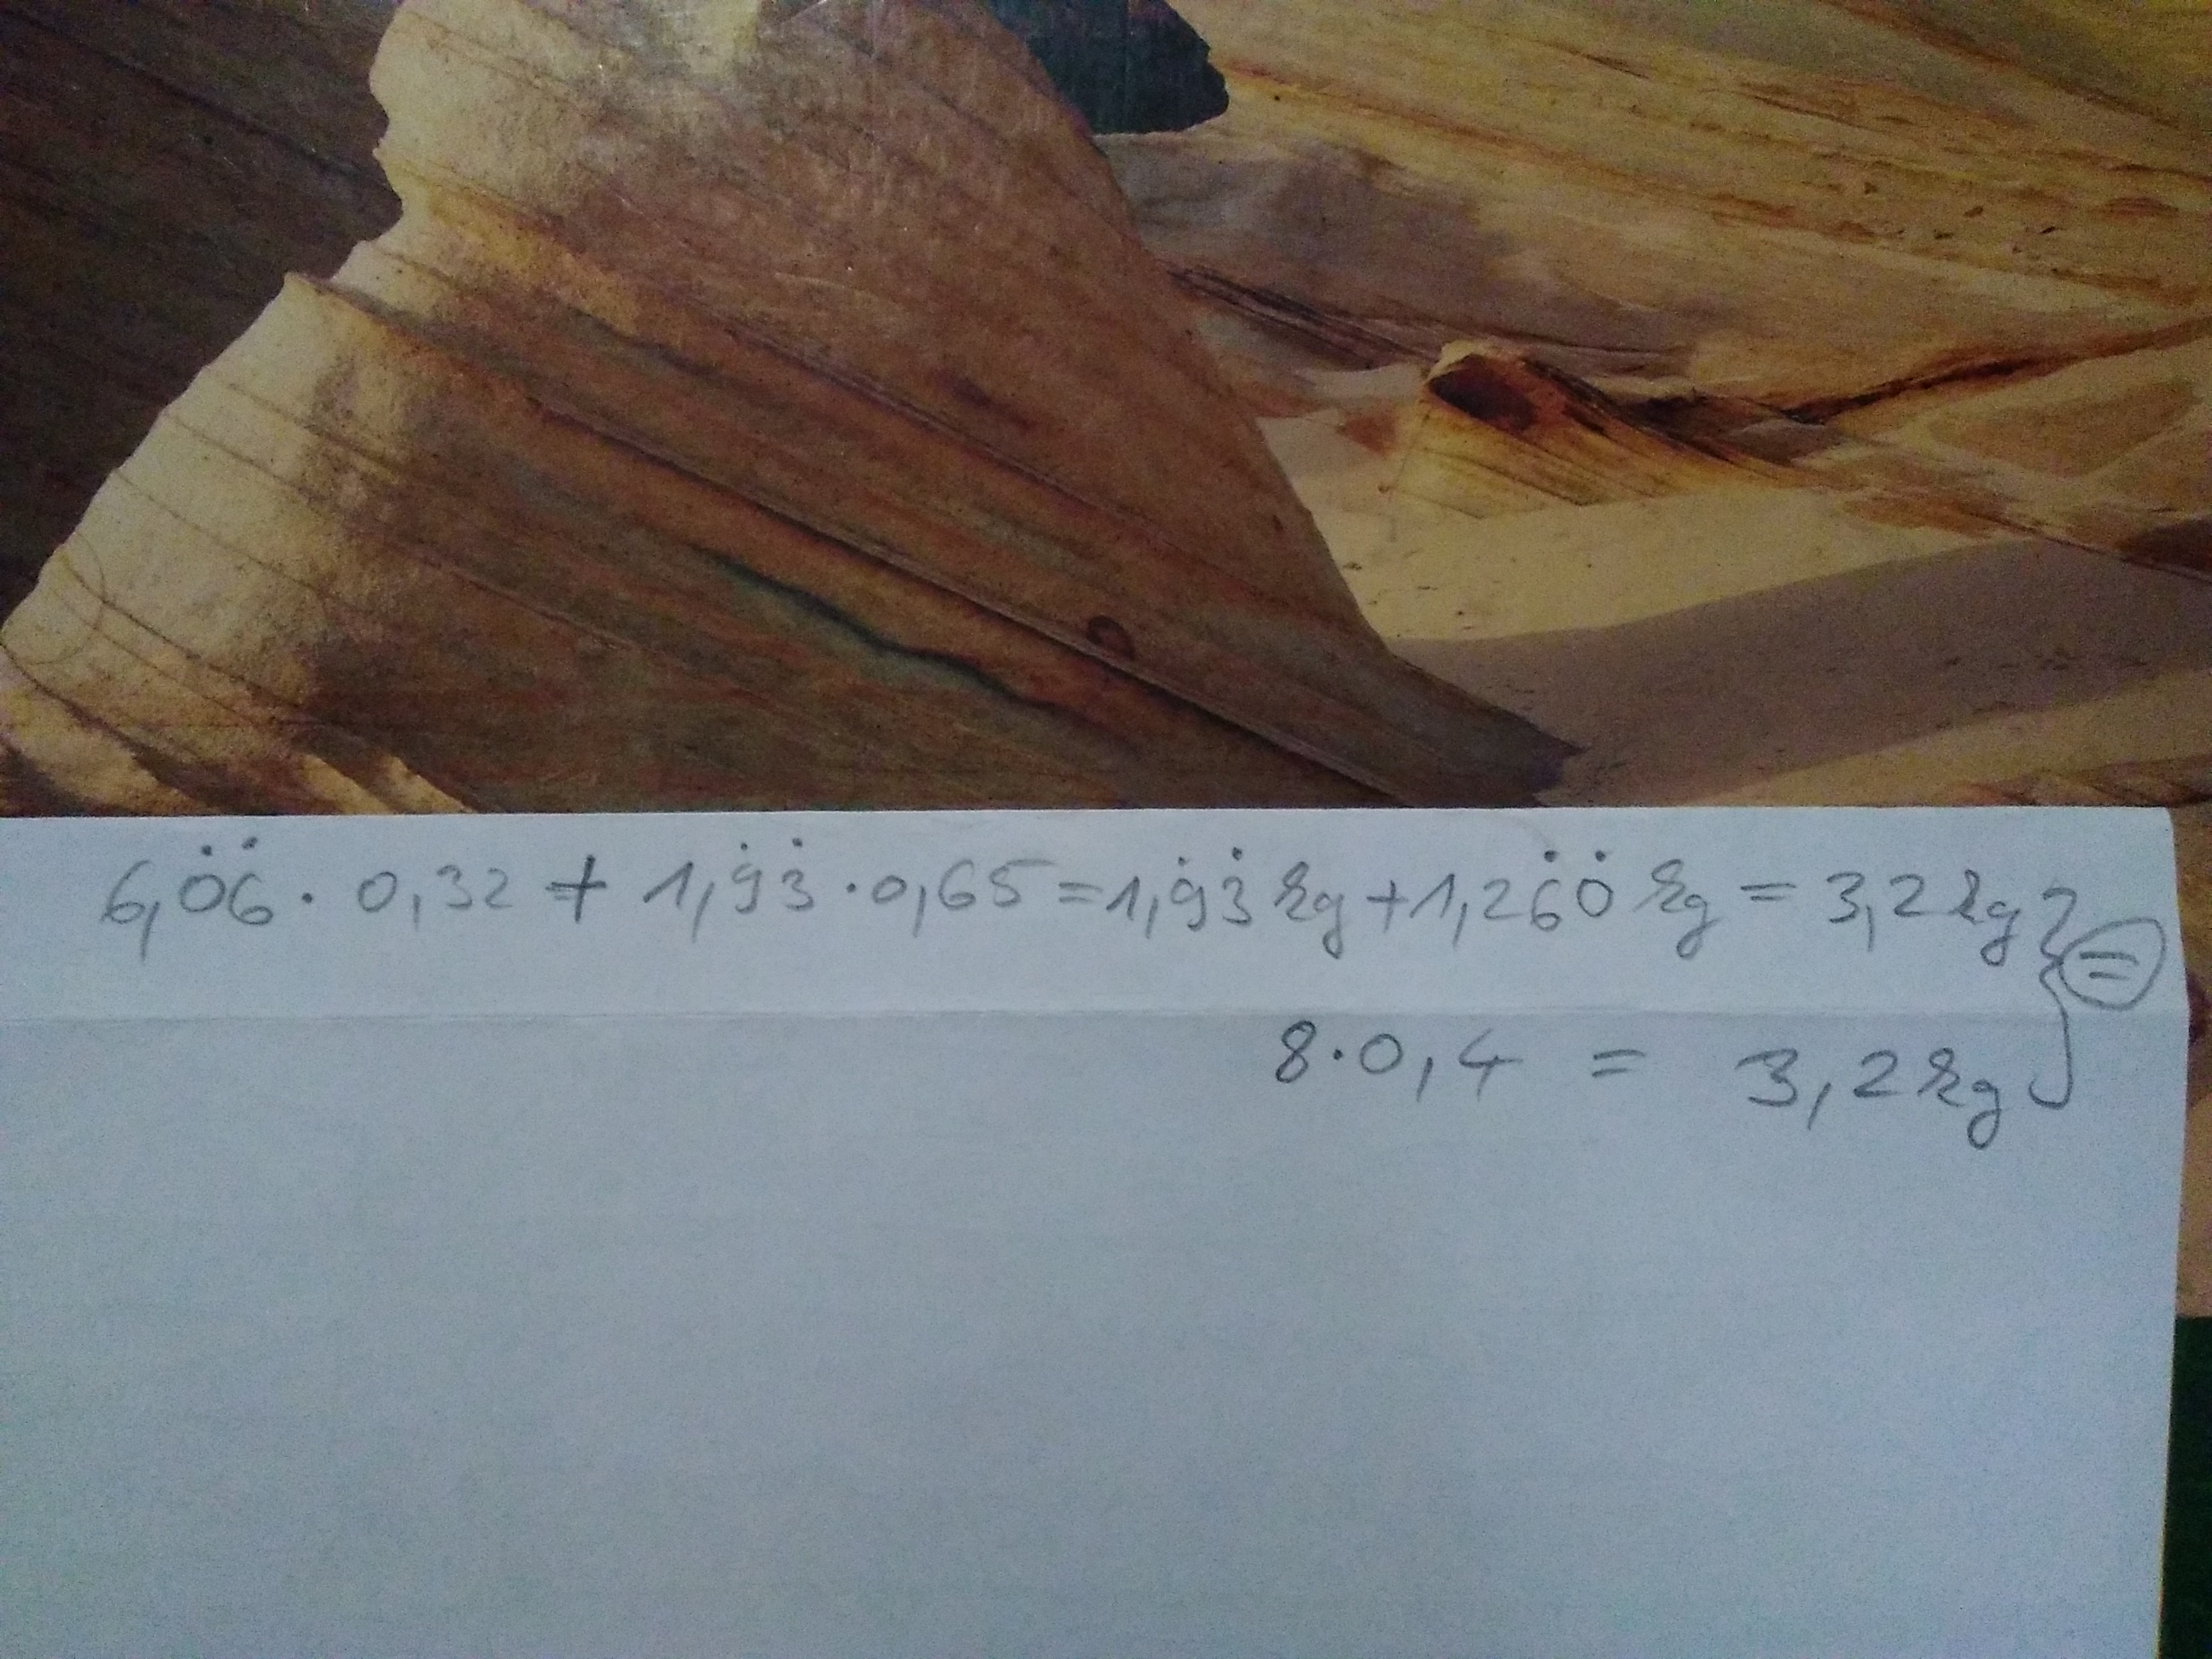 6,0̇6̇ · 0,32 + 1,9̇3̇ · 0,65 = 1,9̇3̇ kg + 1,26̇0̇ kg = 3,2 kg } =
8 · 0,4 = 3,2 kg